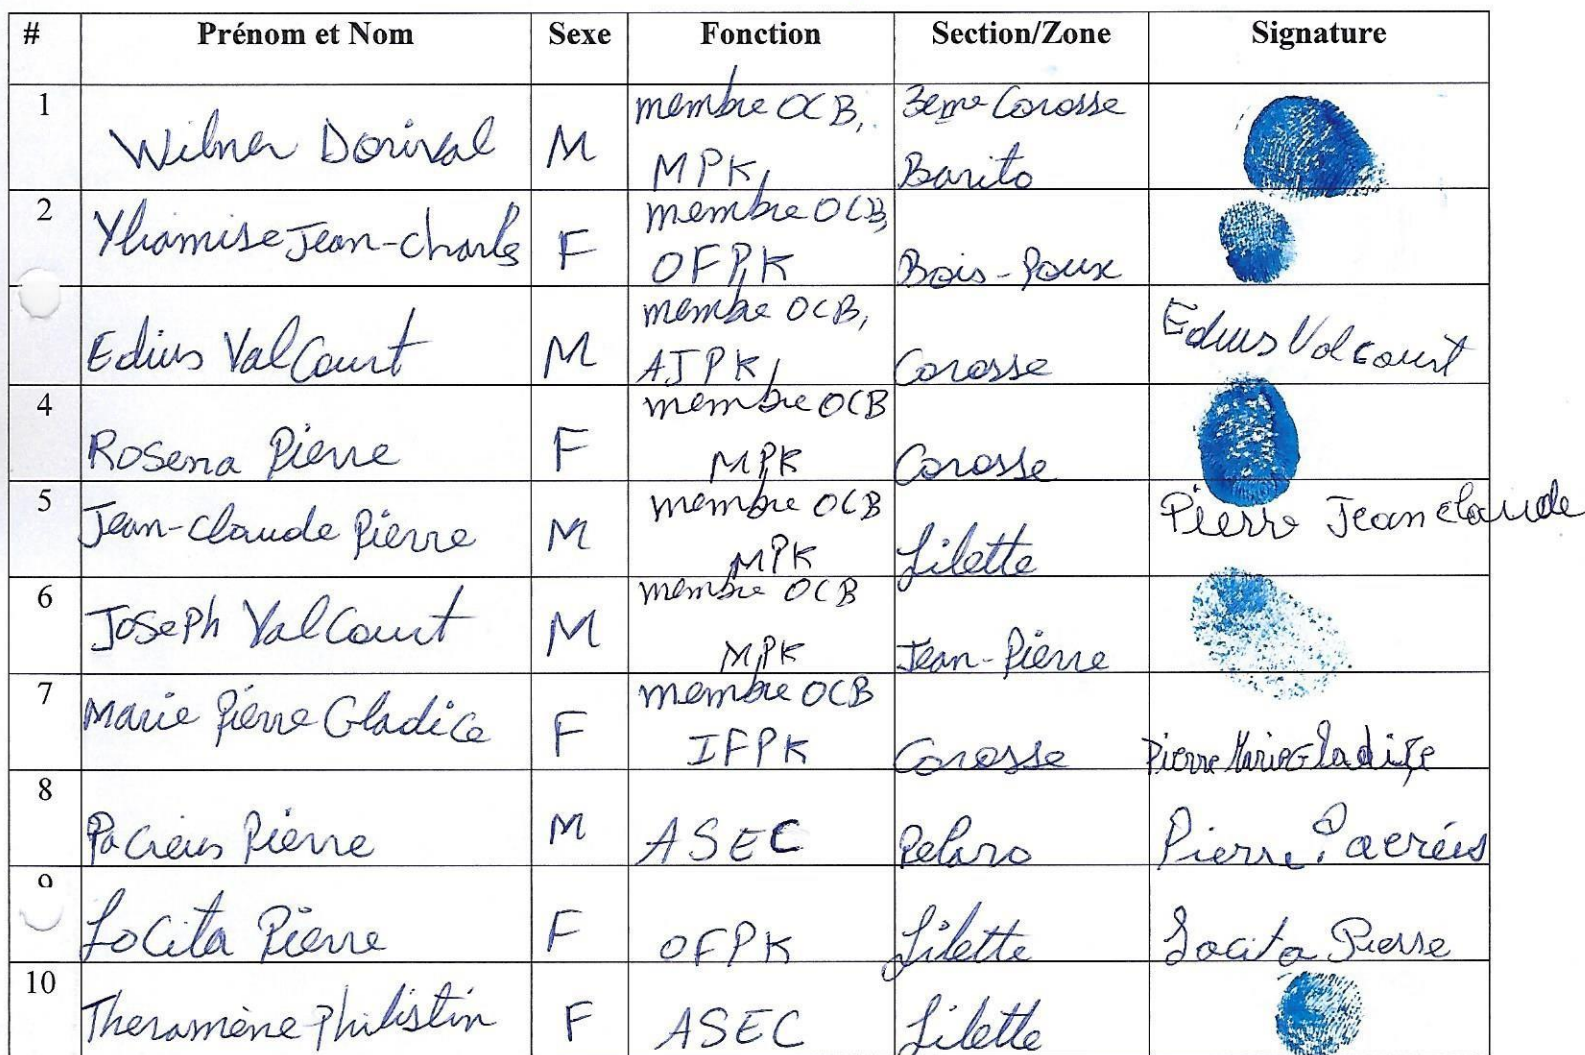 # Prénom et Nom Sexe Fonction Section/Zone Signature
1 Wilner Dorival M membre OCB, MPK, 3eme Corosse Barito
2 Yliamise Jean-charles F membre OCB, OFPK Bois-Poux
Edius ValCourt M membre OCB, AJPK, Corosse Edius Valcourt
4 Rosena Pierre F membre OCB MPK Corosse
5 Jean-claude Pierre M membre OCB MPK Lilette Pierre Jean claude
6 Joseph ValCourt M membre OCB MPK Jean-Pierre
7 Marie Pierre Gladice F membre OCB IFPK Corosse Pierre Marie Gladice
8 Pierre M ASEC Pelaro Pierre
9 LoCita Pierre F OFPK Lilette Locita Pierre
10 Theramène Philistin F ASEC Lilette